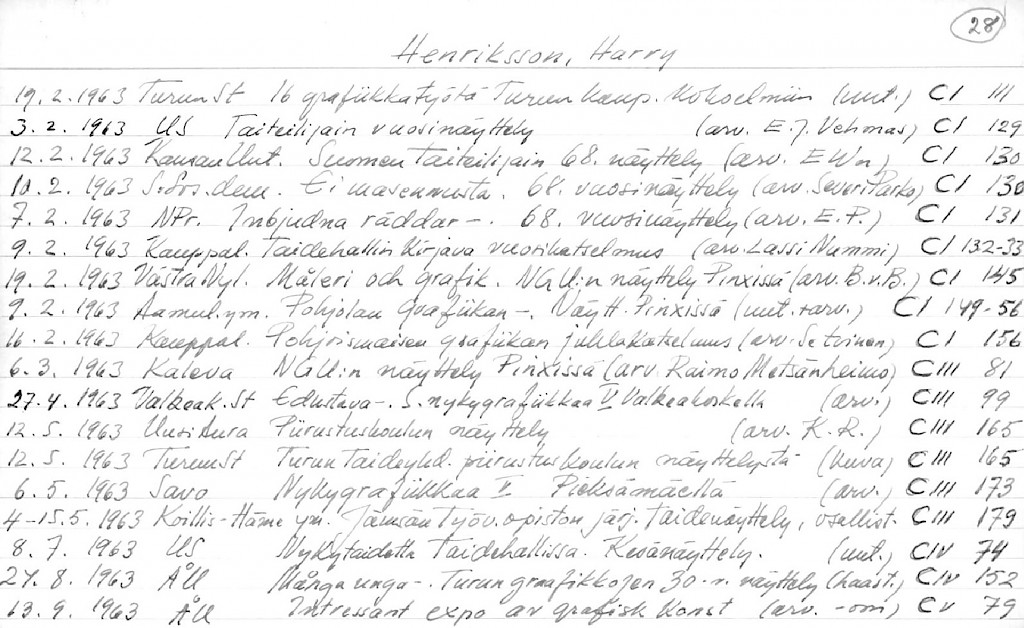 28
Henriksson, Harry
19.2.1963 TurunSt 16 grafiikkatyötä Turun kaup. kokoelmiin (uut.) CI 111
3.2.1963 US Taiteilijain vuosinäyttely (arv. E.J. Vehmas) CI 129
12.2.1963 KansanUut. Suomen Taiteilijain 68. näyttely (arv. EWn) CI 130
10.2.1963 S.Sos.dem. Ei masennusta. 68. vuosinäyttely (arv. Severi Parko) CI 130
7.2.1963 NPr. Inbjudna räddar-. 68. vuosinäyttely (arv. E.P.) CI 131
9.2.1963 Kauppal. Taidehallin kirjava vuosikatselmus (arv. Lassi Nummi) CI 132-33
19.2.1963 VästraNyl. Måleri och grafik. NGU:n näyttely Pinxissä (arv. B.v.B.) CI 145
9.2.1963 Aamul. ym. Pohjolan grafiikan-. Näytt. Pinxissä (uut.+arv.) CI 149-56
16.2.1963 Kauppal. Pohjoismaisen grafiikan juhlakatselmus (arv. ) CI 156
6.3.1963 Kaleva NGU:n näyttely Pinxissä (arv. Raimo Metsänheimo) CIII 81
27.4.1963 Valkeak.St Edustava-. S. nykygrafiikkaa V Valkeakoskella (arv.) CIII 99
12.5.1963 UusiAura Piirustuskoulun näyttely (arv. K.R.) CIII 165
12.5.1963 TurunSt Turun Taideyhd. piirustuskoulun näyttelystä (kuva) CIII 165
6.5.1963 Savo Nykygrafiikkaa V Pieksämäellä (arv.) CIII 173
4-15.5.1963 Koillis-Häme ym. Jämsän Työv.opiston järj. taidenäyttely, osallist. CIII 179
8.7.1963 US Nykytaidetta Taidehallissa. Kesänäyttely. (uut.) CIV 74
27.8.1963 ÅU Många unga-. Turun graafikkojen 30-v. näyttely (haast.) CIV 152
13.9.1963 ÅU Intressant expo av grafisk konst (arv. -om) CV 79